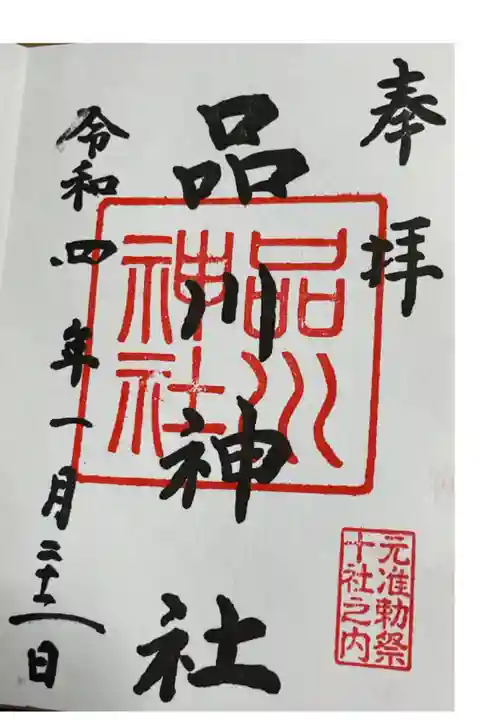 奉拝
元准勅祭
十社之内
品川神社
品川
神社
令和四年一月二十二日